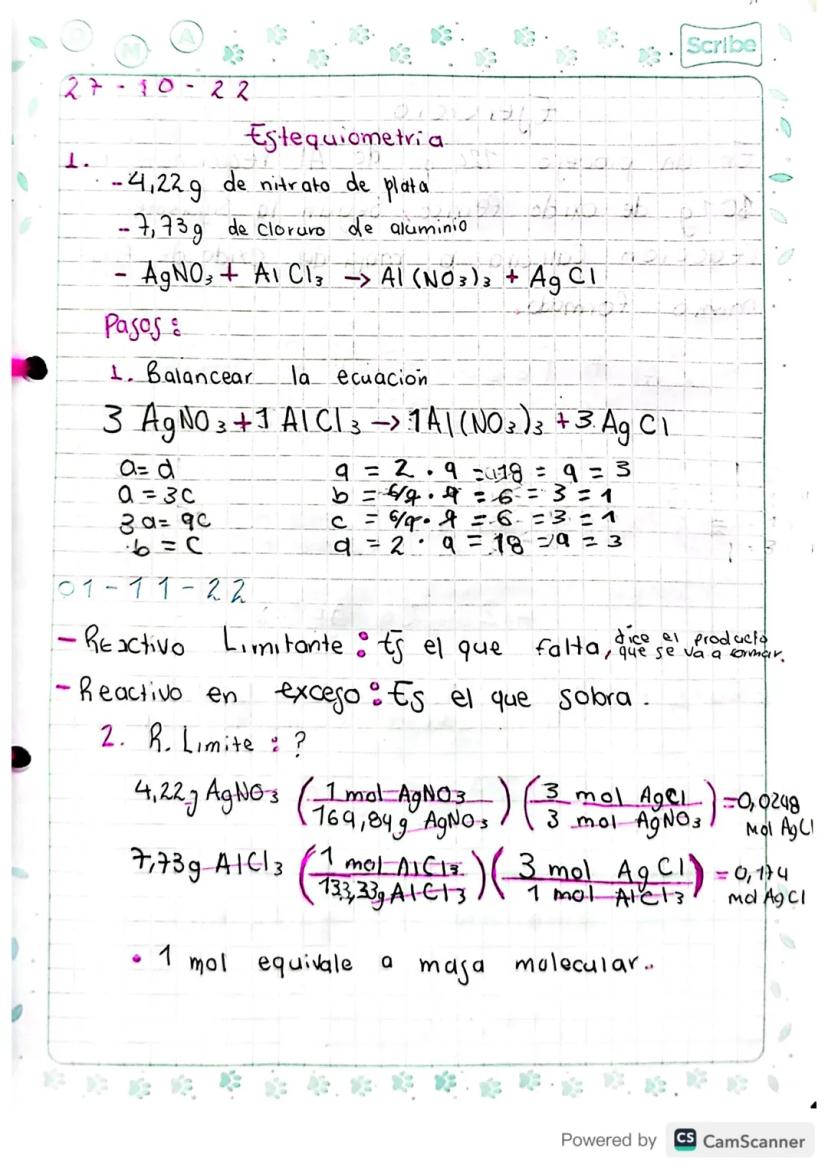 D M A
Scribe
27-10-22
Estequiometria
1.
- 4,22g de nitrato de plata
- 7,73g de cloruro de aluminio
- AgNO3 + AlCl3 → Al(NO3)3 + AgCl
Pasos:
1. Balancear la ecuación
3 AgNO3 + 1 AlCl3 → 1Al(NO3)3 + 3 AgCl
a = d
a = 3c
3a = 9c
b = c
a = 2 · 9 = 18 = 9 = 3
b = 6/9 · 9 = 6 = 3 = 1
c = 6/9 · 9 = 6 = 3 = 1
d = 2 · 9 = 18 = 9 = 3
01-11-22
- Reactivo Limitante: Es el que falta, dice el producto que se va a formar.
- Reactivo en exceso: Es el que sobra.
2. R. Limite: ?
4,22g AgNO3 (1 mol AgNO3 / 169,84g AgNO3) (3 mol AgCl / 3 mol AgNO3) = 0,0248 Mol AgCl
7,73g AlCl3 (1 mol AlCl3 / 133,33g AlCl3) (3 mol AgCl / 1 mol AlCl3) = 0,174 Mol AgCl
• 1 mol equivale a masa molecular..
Powered by CS CamScanner